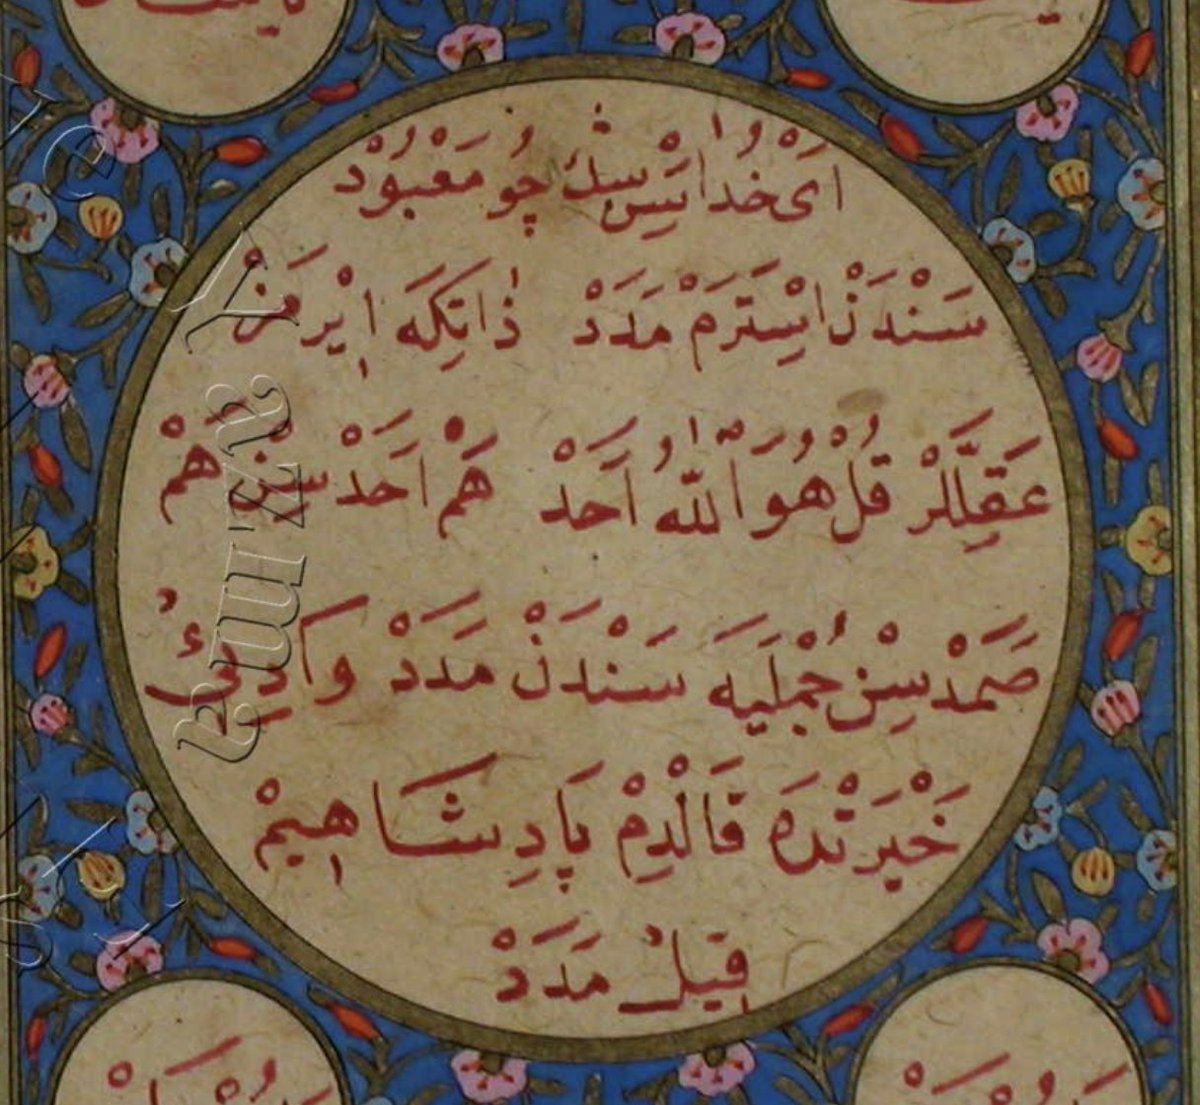 اَىْ خُدَا سِنْسِكْ چُو مَعْبُودْ
سَنْدَنْ اِسْتَرَمْ مَدَدْ ذَاتِكَه اِيْرَمَزْ
عَقِلَّلَرْ قُلْ هُوَ اللّٰهُ اَحَدْ هَمْ اَحَدْسِنْ هَمْ
صَمَدْسِنْ جُمْلَيَه سَنْدَنْ مَدَدْ وَادِئِ
حَيْرَتْدَه قَالْدِمْ پَادِشَاهِيمْ
قِيلْ مَدَدْ